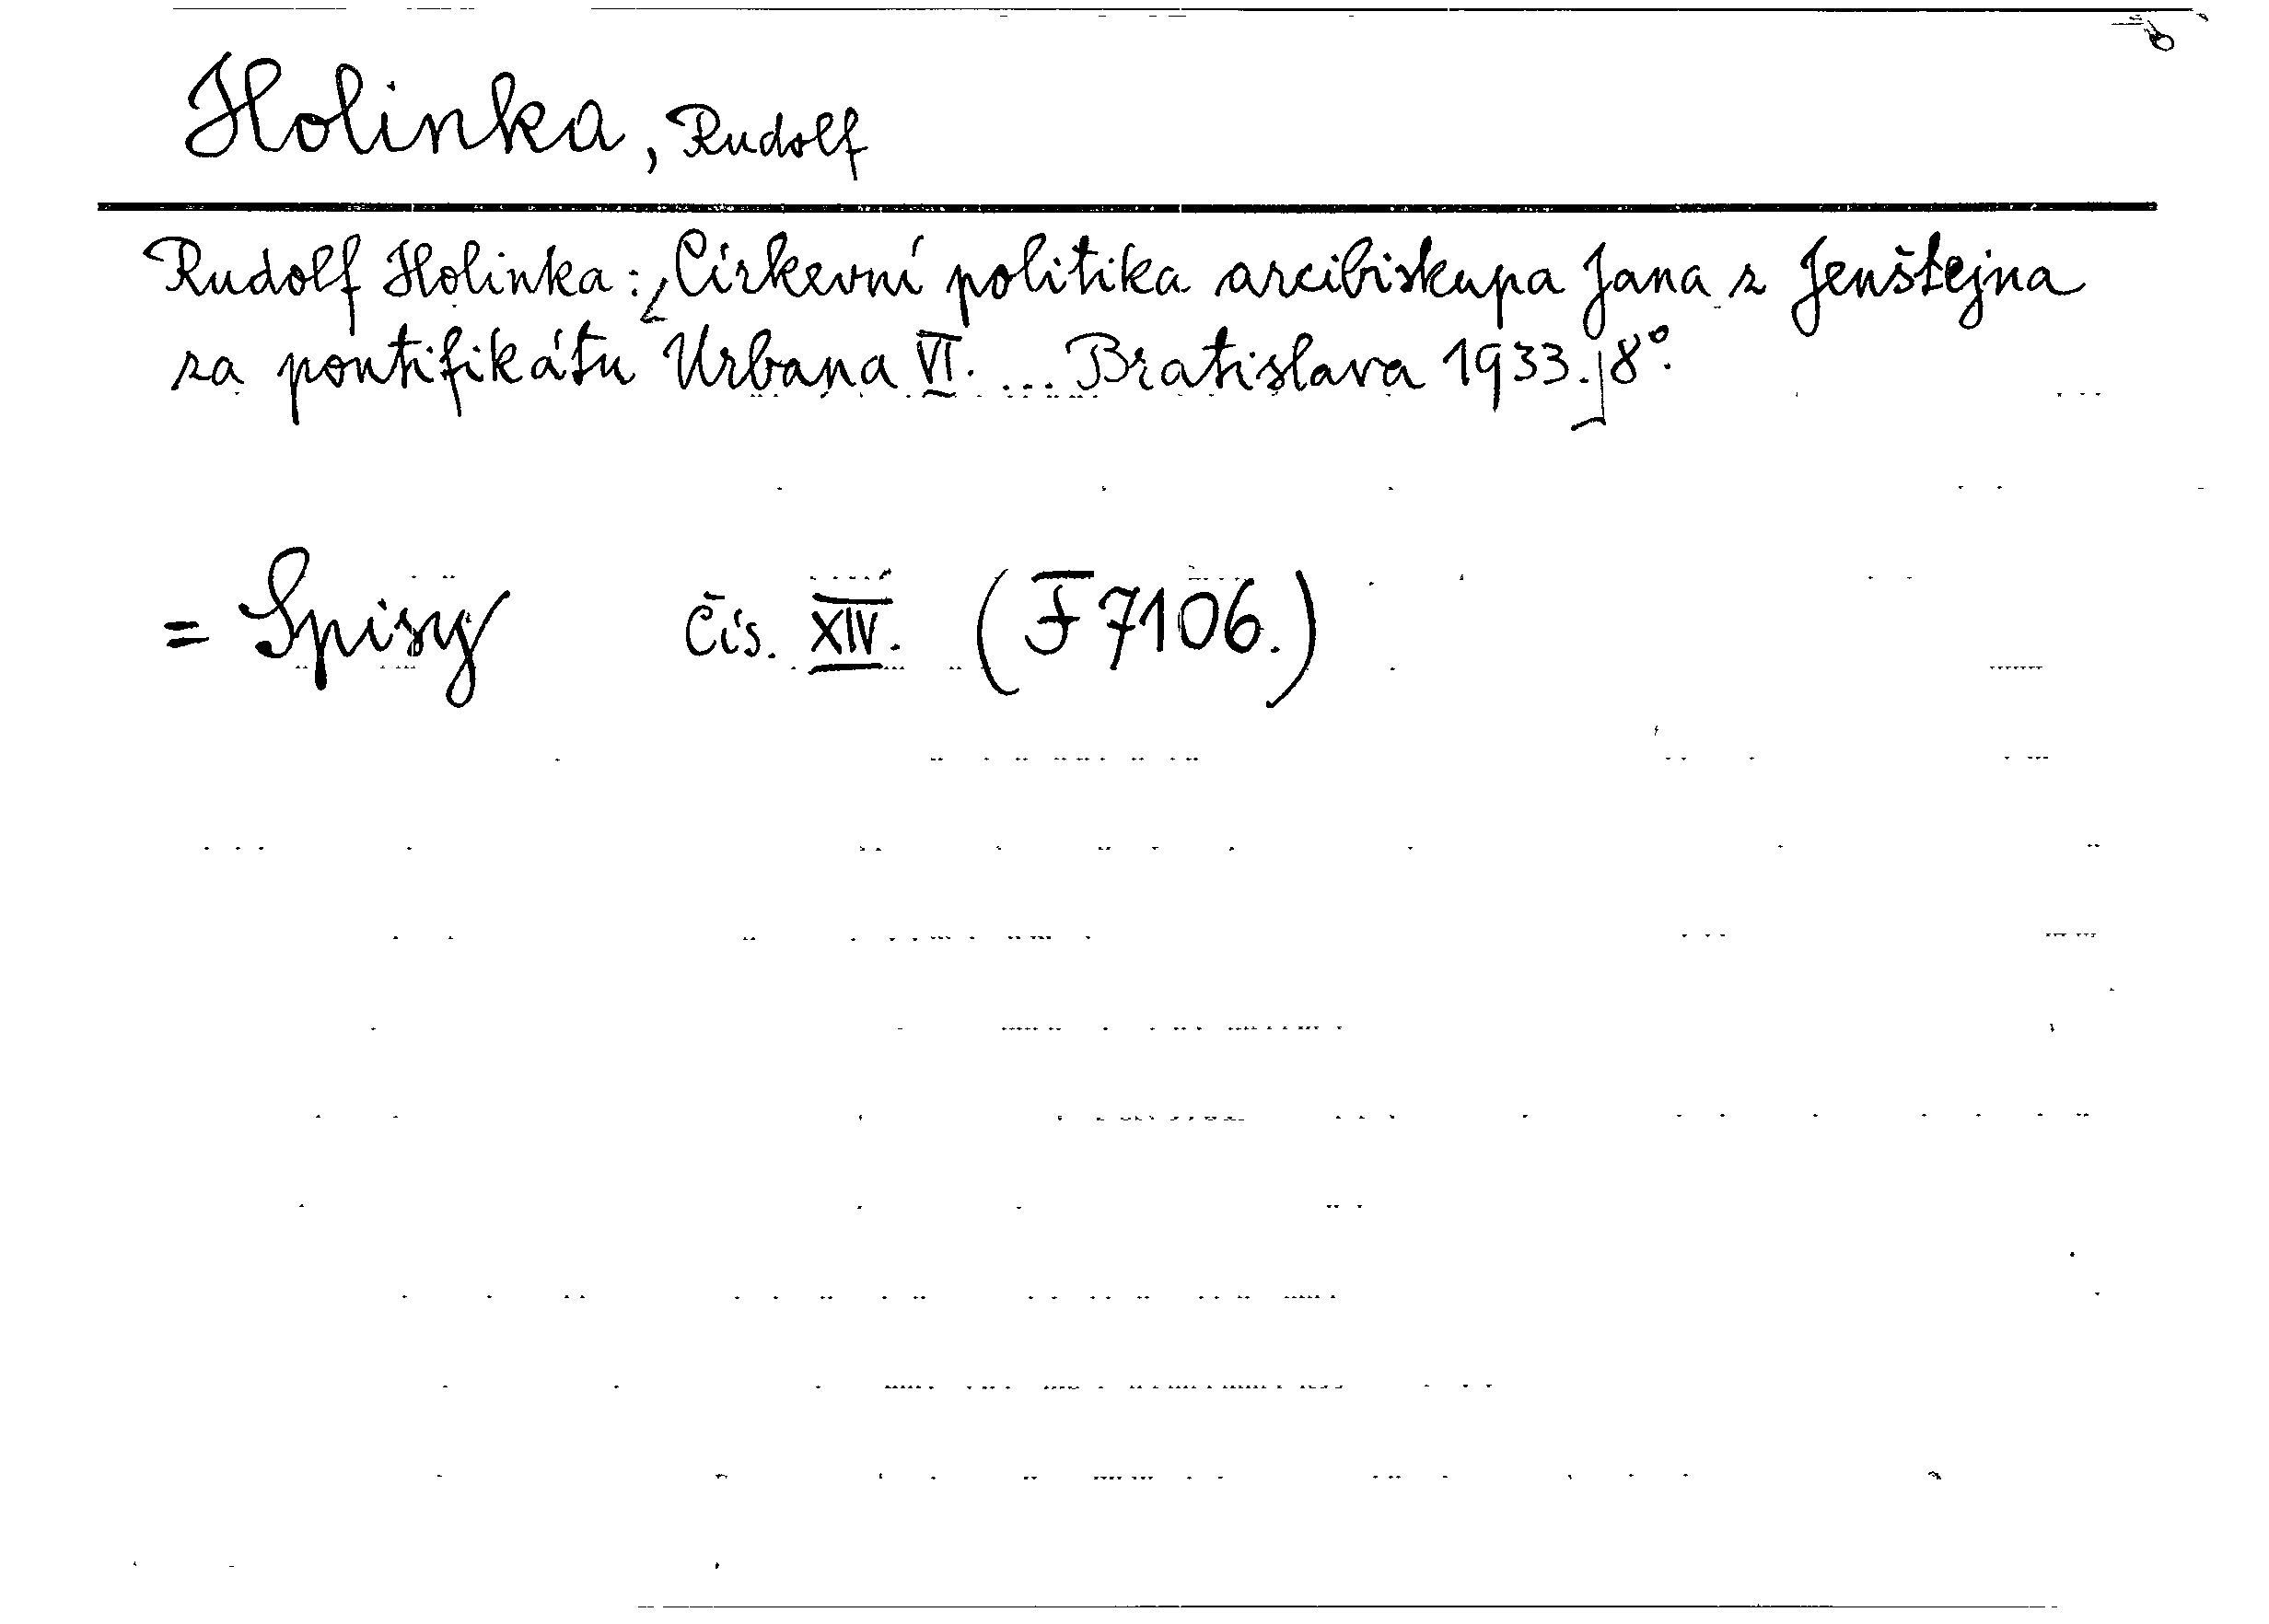 Holinka, Rudolf
Rudolf Holinka: Církevní politika arcibiskupa Jana z Jenštejna
za pontifikátu Urbana VI. ... Bratislava 1933. 8°.
= Spisy čís. XIV. (F 7106.)